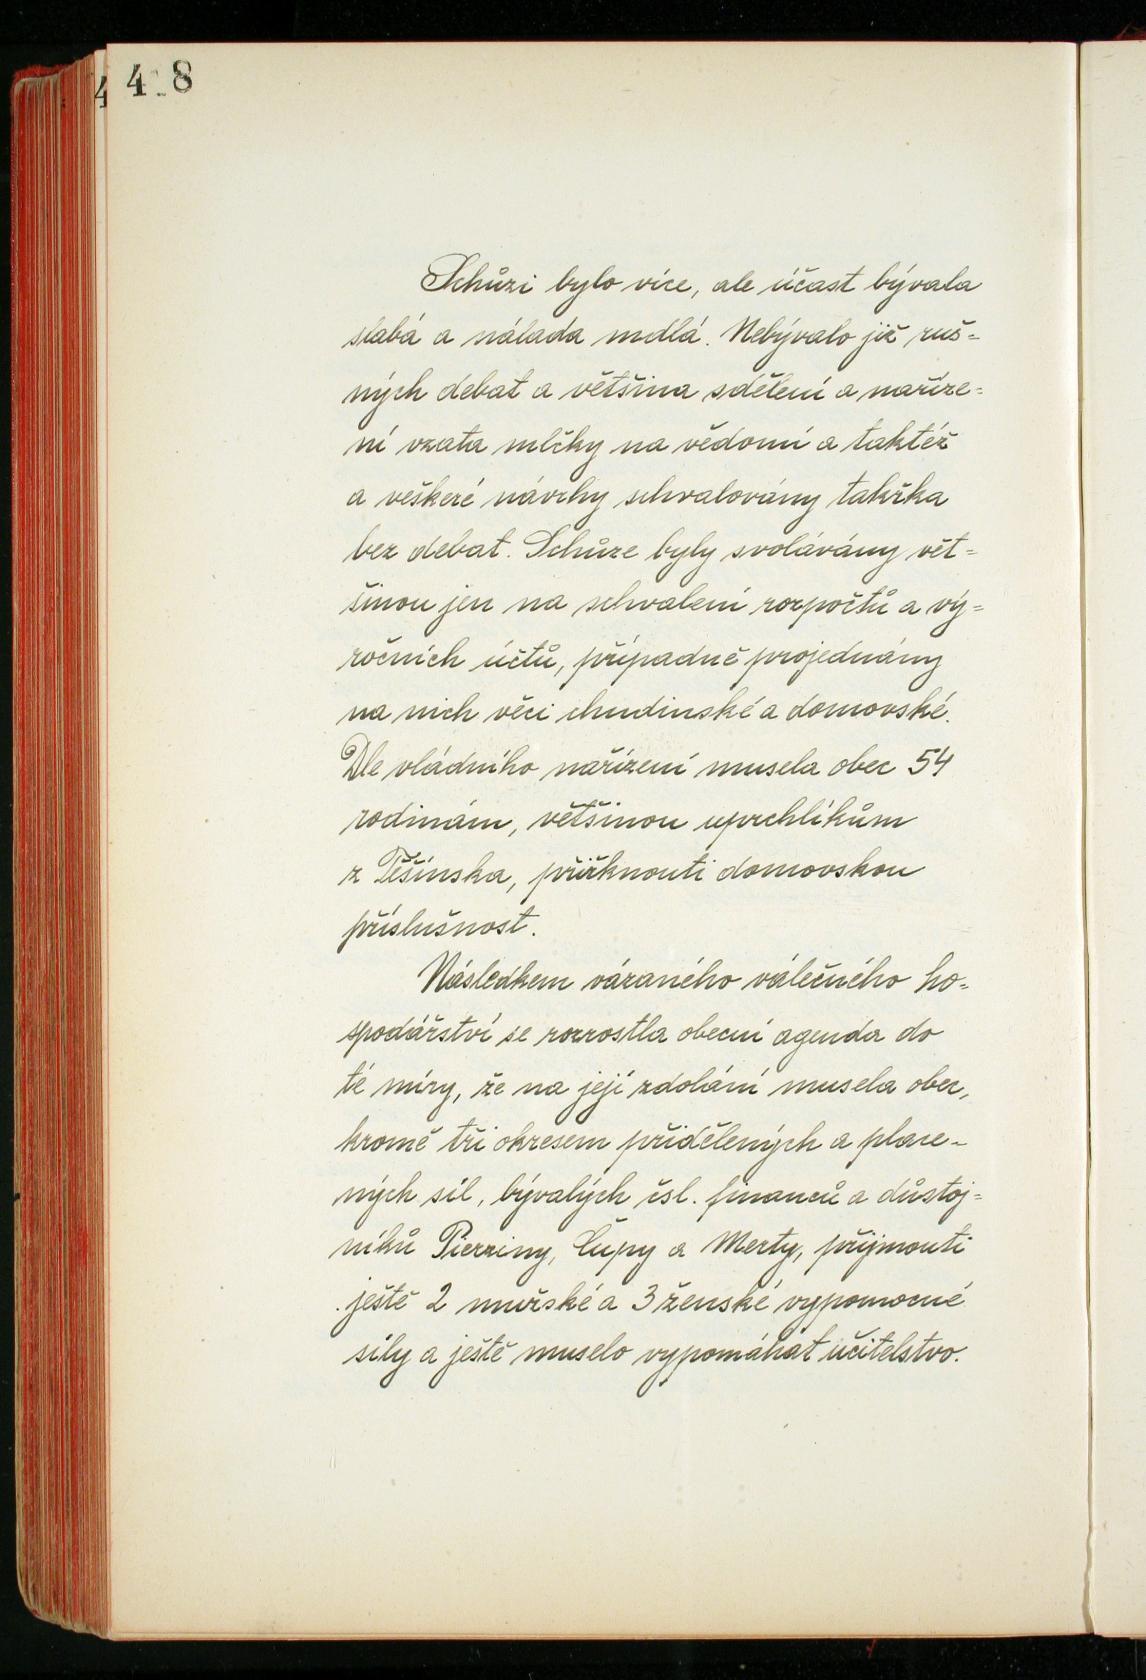 4 8
Schůzi bylo více, ale účast bývala
slabá a nálada mdlá. Nebývalo již ruš=
ných debat a většina sdělení a naříze=
ní vzata mlčky na vědomí a taktéž
a veškeré návrhy schvalovány takřka
bez debat. Schůze byly svolávány vět=
šinou jen na schvalení rozpočtů a vý=
ročních účtů, případně projednány
na nich věci chudinské a domovské.
Dle vládního nařízení musela obec 54
rodinám, většinou uprchlíkům
z Těšínska, přiřknouti domovskou
příslušnost.
Následkem vázaného válečného ho-
spodářství se rozrostla obecní agenda do
té míry, že na její zdolání musela obec,
kromě tři okresem přidělených a place-
ných sil, bývalých čsl. financů a důstoj=
níků Pierziny, Čupy a Merty, přijmouti
ještě 2 mužské a 3 ženské vypomocné
síly a ještě muselo vypomáhat učitelstvo.